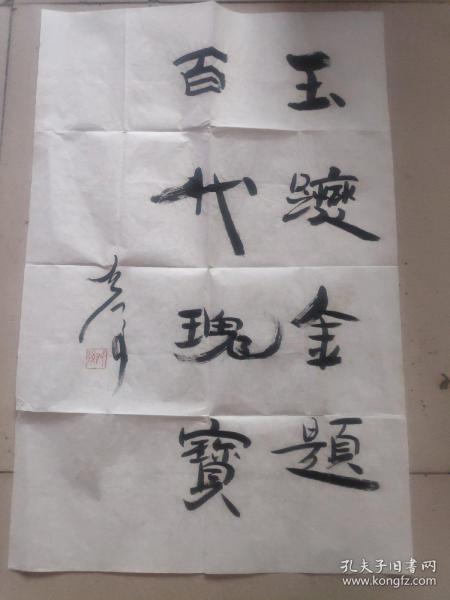 玉躞金題
百代瑰寶
孔夫子旧书网
www.kongfz.com